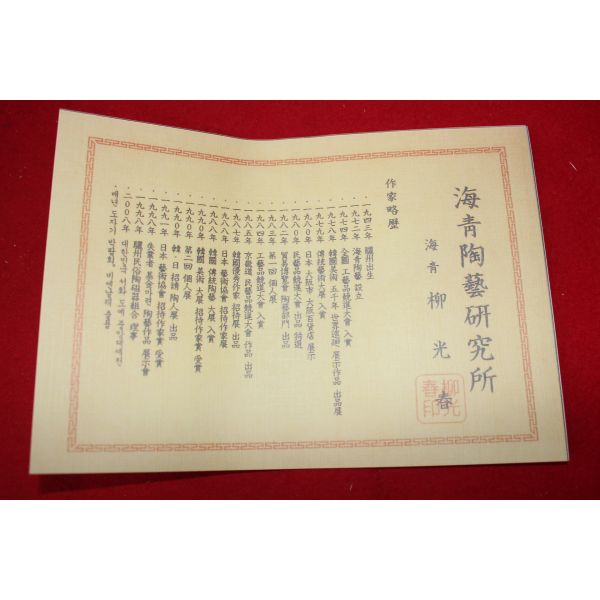 海青陶藝硏究所
海青 柳光春
柳光春印
作家略歷
·一九四三年 驪州出生
·一九七二年 海青陶藝 設立
·一九七四年 全國 工藝品競進大會 入賞
·一九七八年 韓國美術 五千年 世界巡廻 展示作品 出品展
·一九七九年 傳統藝術大展 入賞
·一九八〇年 日本 大阪市 大阪百貨店 展示
·一九八〇年 民藝品競進大會 出品 特選
·一九八二年 貿易博覽會 陶藝部門 出品
·一九八三年 第一回 個人展
·一九八四年 工藝品競進大會 入賞
·一九八五年 京畿道 民藝品競進大會 作品 出品
·一九八七年 韓國優秀作家 招待展 出品
·一九八八年 日本 藝術協會 招待作家展
·一九八八年 韓國 傳統陶藝 大展 入賞
·一九九〇年 韓國 美術 大展 招待作家賞 受賞
·一九九〇年 第二回 個人展
·一九九〇年 韓·日 招請 陶人展 出品
·一九九一年 日本 藝術協會 招待作家賞 受賞
·一九九八年 失業者 基金마련 陶藝作品 展示會
·一九九八年 驪州民俗陶磁器組合 理事
·二〇〇八年 대한민국 서화 도예
·매년 도자기 박람회, 비엔날레 출품